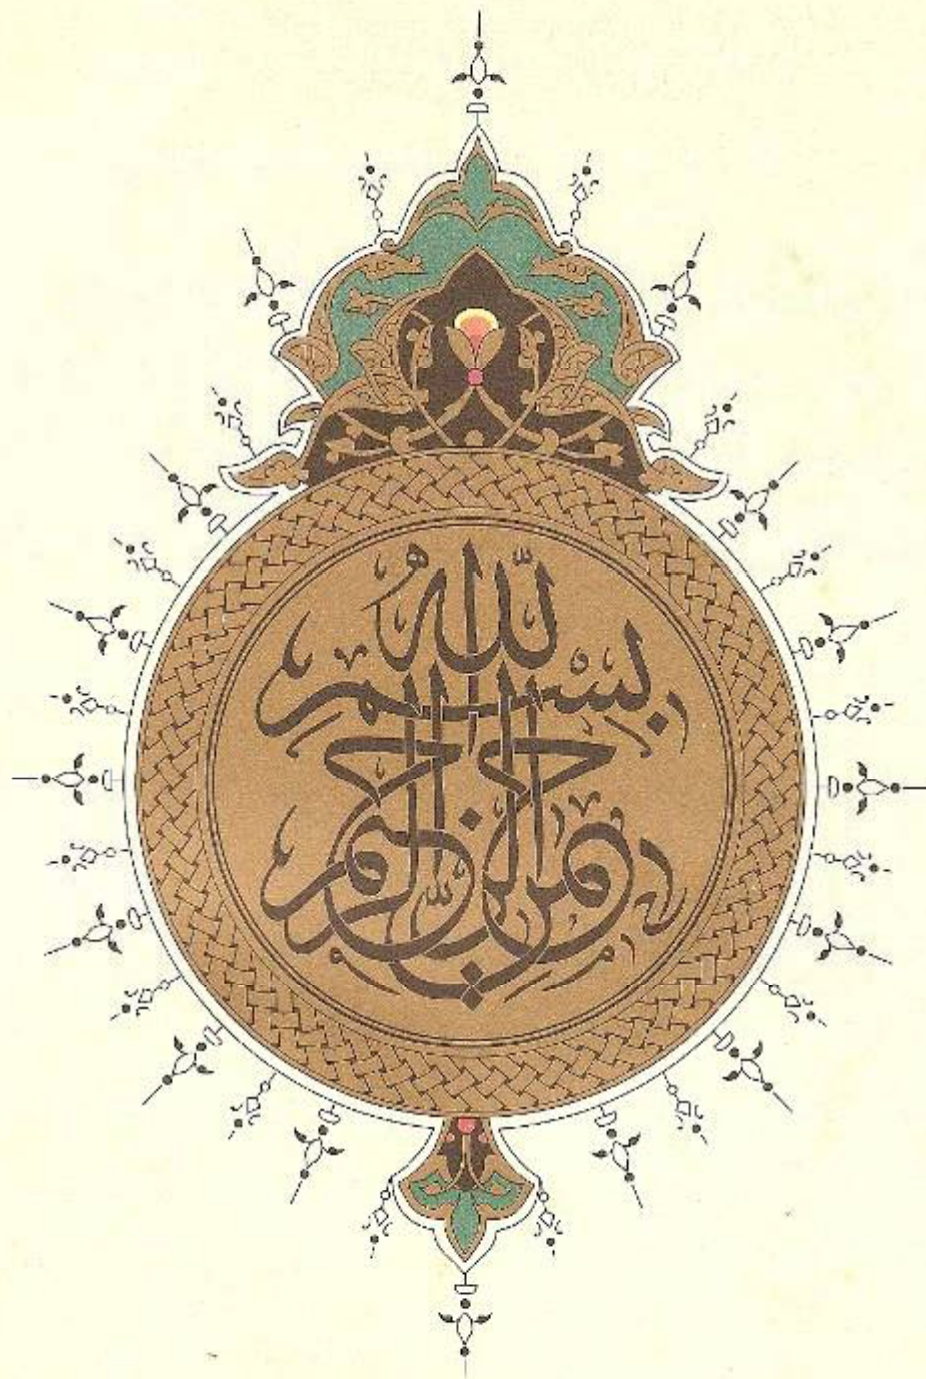 بِسْمِ اللّٰهُ الرحمن الرحيم